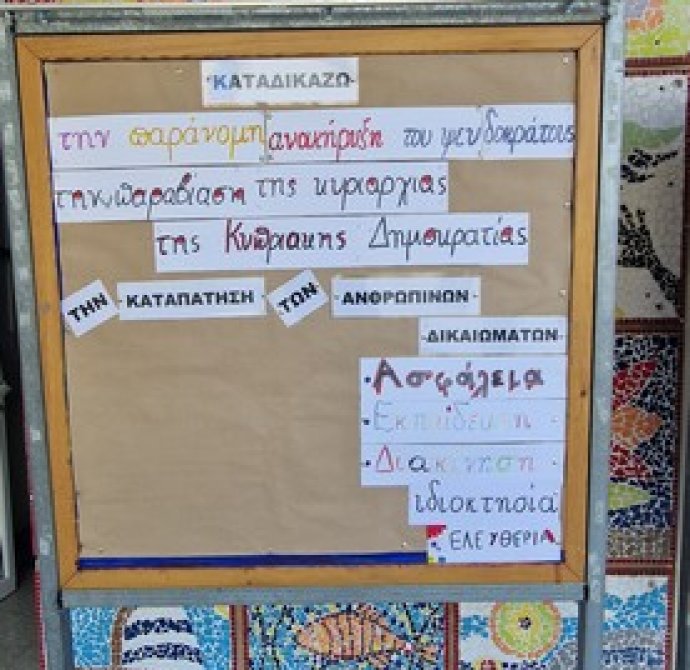 ΚΑΤΑΔΙΚΑΖΩ
την παράνομη ανακήρυξη του ψευδοκράτους
την παραβίαση της κυριαρχίας
της Κυπριακης Δημοκρατίας
ΤΗΝ -ΚΑΤΑΠΑΤΗΣΗ ΤΩΝ ΑΝΘΡΩΠΙΝΩΝ-
-ΔΙΚΑΙΩΜΑΤΩΝ-
• Ασφάλεια
• Εκπαίδευση
• Διακίνηση
ιδιοκτησία
ΕΛΕΥΘΕΡΙΑ